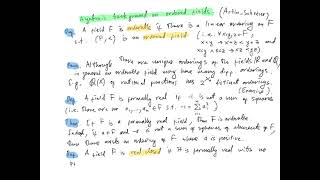 Algebraic background on ordered fields (Artin-Schreier)
Def. A field F is orderable if there is a linear ordering on F
s.t. (F, <) is an ordered field (i.e. ∀x,y,z∈F,
x<y → x+z<y+z and
x<y
Rem. Although there are unique orderings of the fields ℝ and ℚ
in general an orderable field may have many diff. orderings.
E.g. ℚ(X) of rational functions has 2^ℵ₀ distinct orderings.
(Exercise).
Def. A field F is formally real if -1 is not a sum of squares
(i.e. there are no a₁,…,aₙ ∈ F s.t. -1 = Σ aᵢ²)
Thm. If F is a formally real field, then F is orderable
Indeed, if a∈F and -a is not a sum of squares of elements of F,
then there exists an ordering of F where a is positive.
Def. A field F is real closed if it is formally real with no